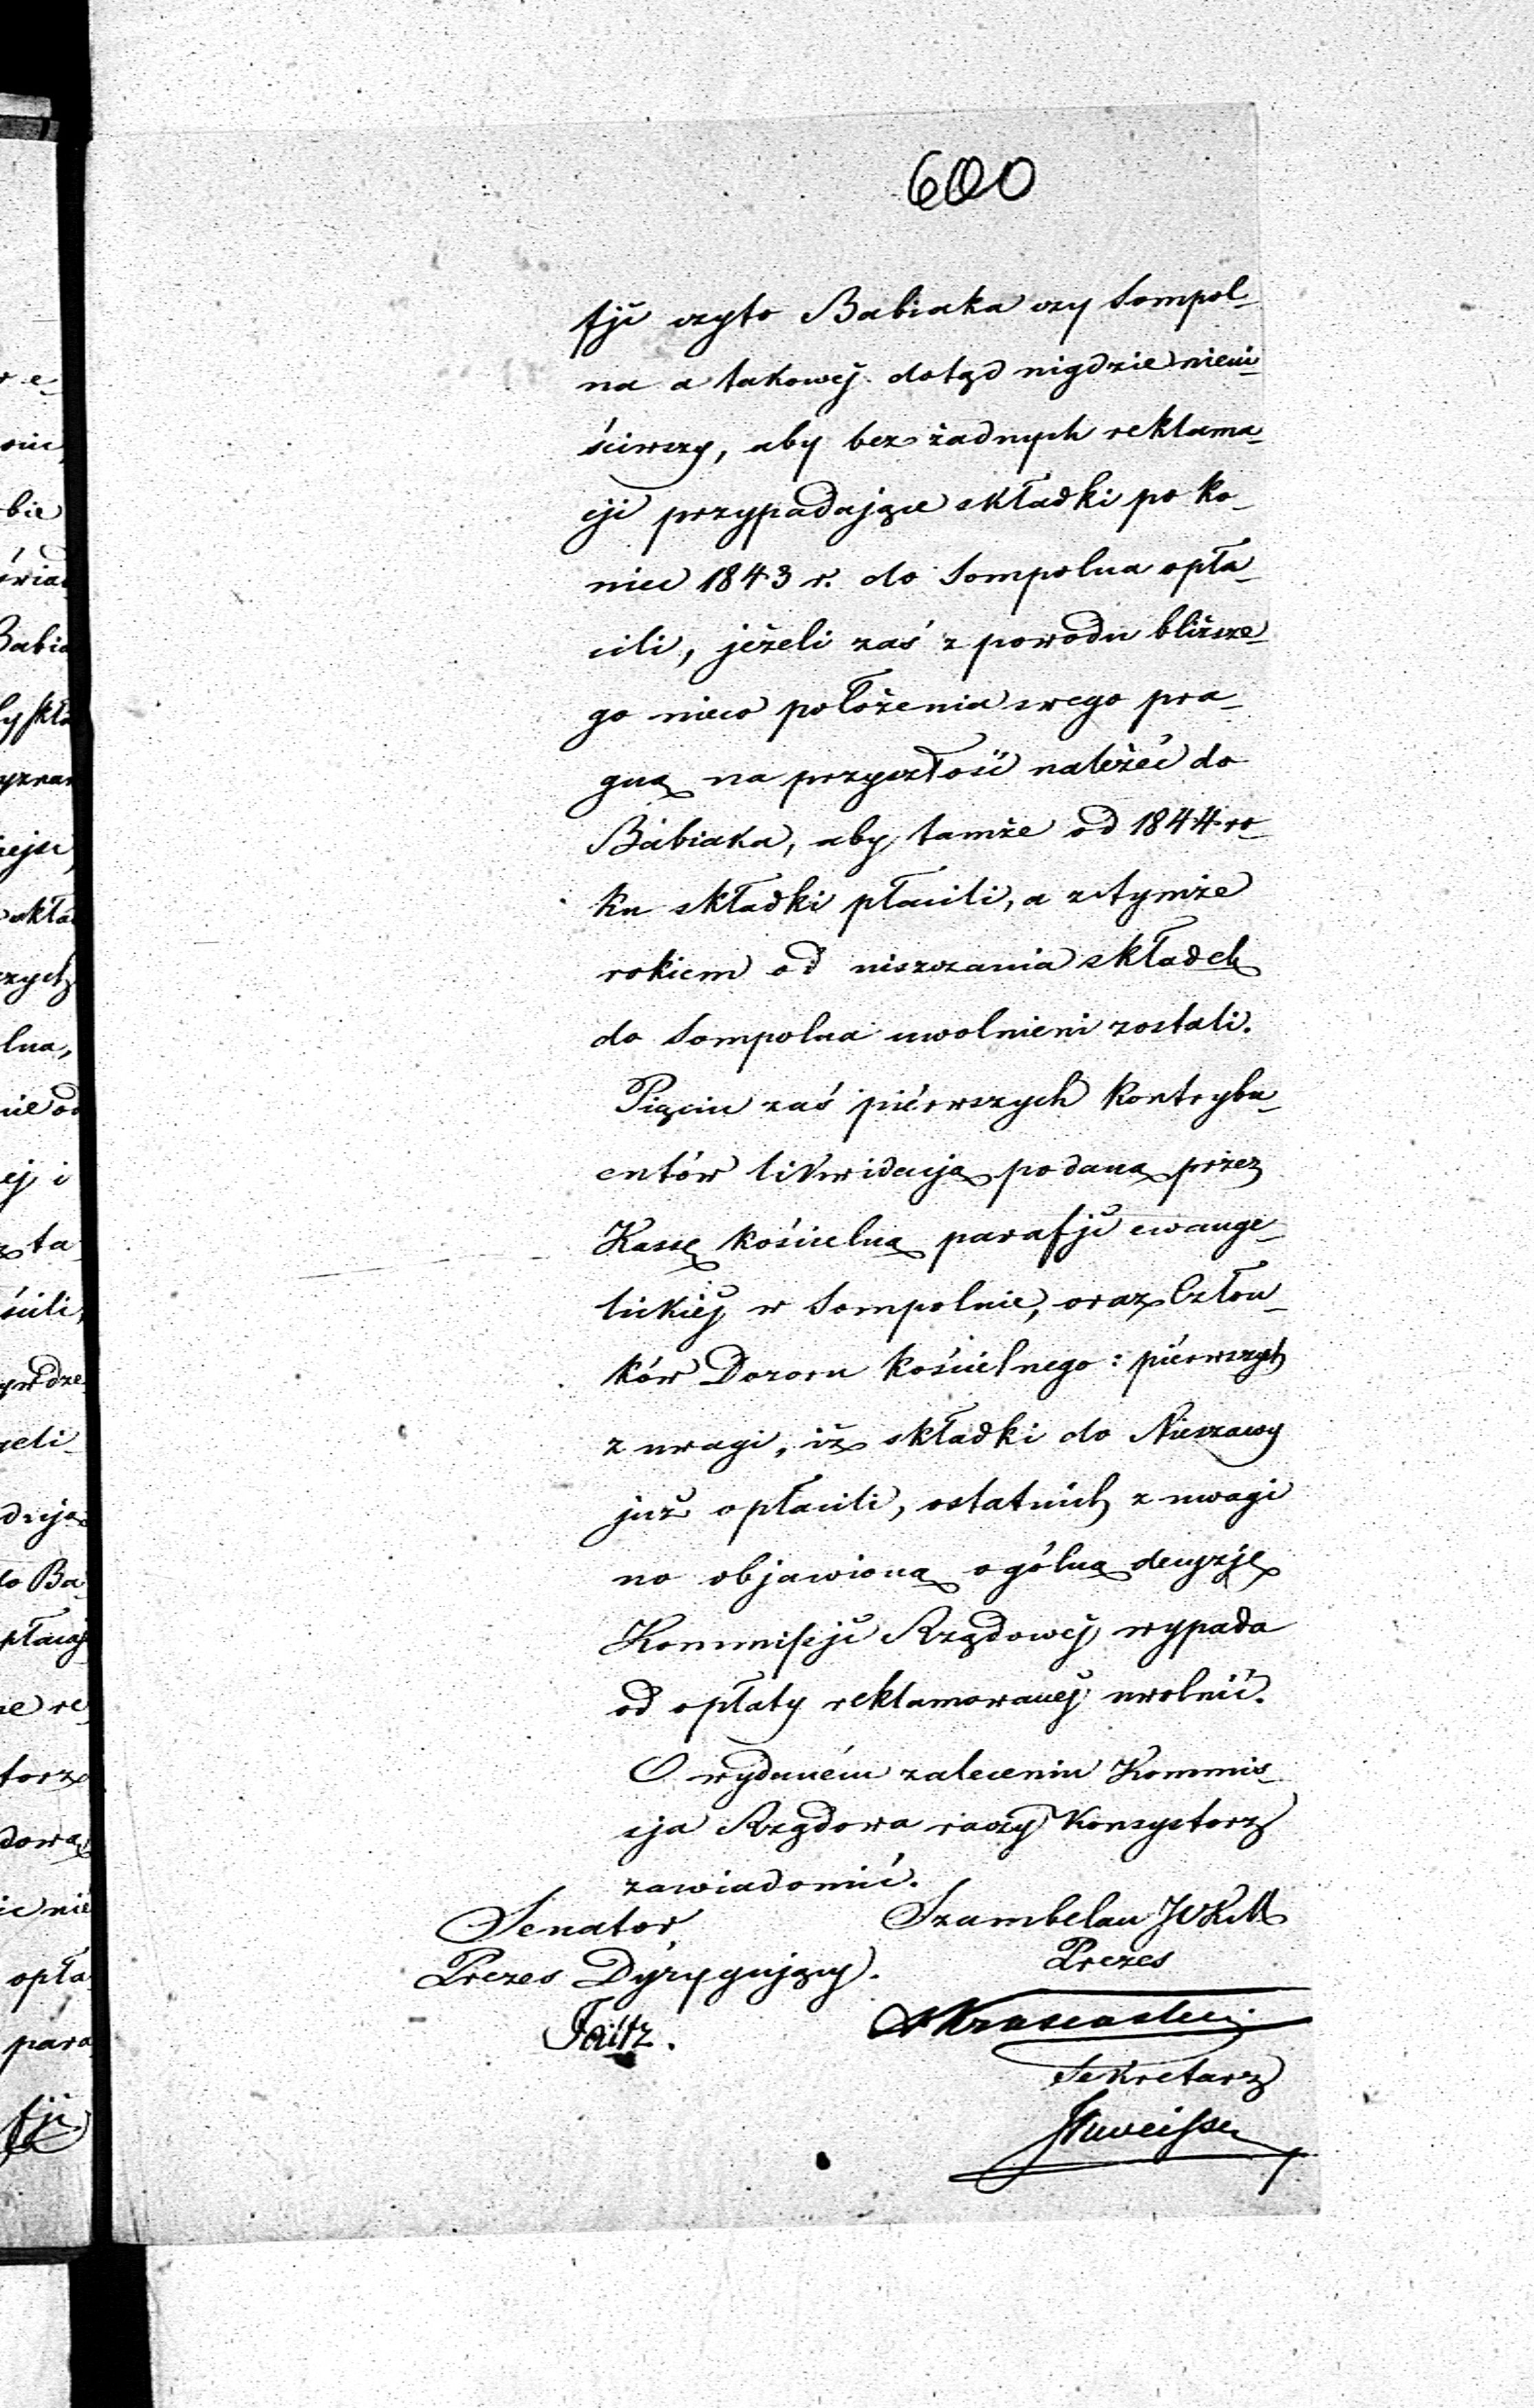 600
fji czyto Babiaka czy Sompol-
na a takowej dotąd nigdzie nieui-
ściwszy, aby bez żadnych reklama-
cji przypadające składki po ko-
niec 1843 r. do Sompolna opła-
cili, jeżeli zaś z powodu bliższe-
go nieco położenia swego pra-
gną na przyszłość należéć do
Babiaka, aby tamże od 1844 ro-
ku składki płacili, a z tymże
rokiem od uiszczania składek
do Sompolna uwolnieni zostali.
Pięciu zaś piérwszych kontrybu-
entów likwidacją podaną przez
Kassę kościelną parafji ewange-
lickiej w Sompolnie, oraz Człon-
ków Dozoru kościelnego: piérwszych
z uwagi, iż składki do Nieszawy
już opłacili, ostatnich z uwagi
na objawioną ogólną decyzję
Kommissji Rządowej wypada
od opłaty reklamowanej uwolnić.
O wydaném zaleceniu Kommis-
sja Rządowa raczy Konsystorz
zawiadomić.
Senator
Prezes Dyrygujący.
Szambelan JKM
Prezes
Sekretarz